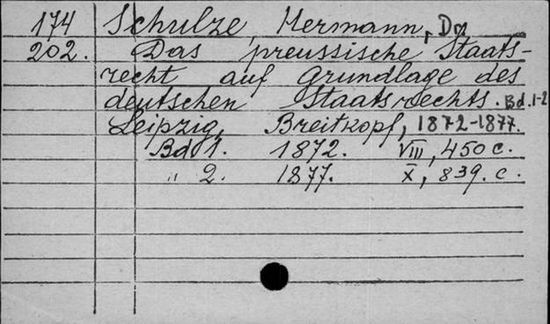 174 Schulze, Hermann, Dr.
202. Das preussische Staats-
recht auf Grundlage des
deutschen Staatsrechts. Bd. 1-2
Leipzig, Breitkopf, 1872-1877.
Bd. 1. 1872. VIII, 450 c.
„ 2. 1877. X, 839. c.